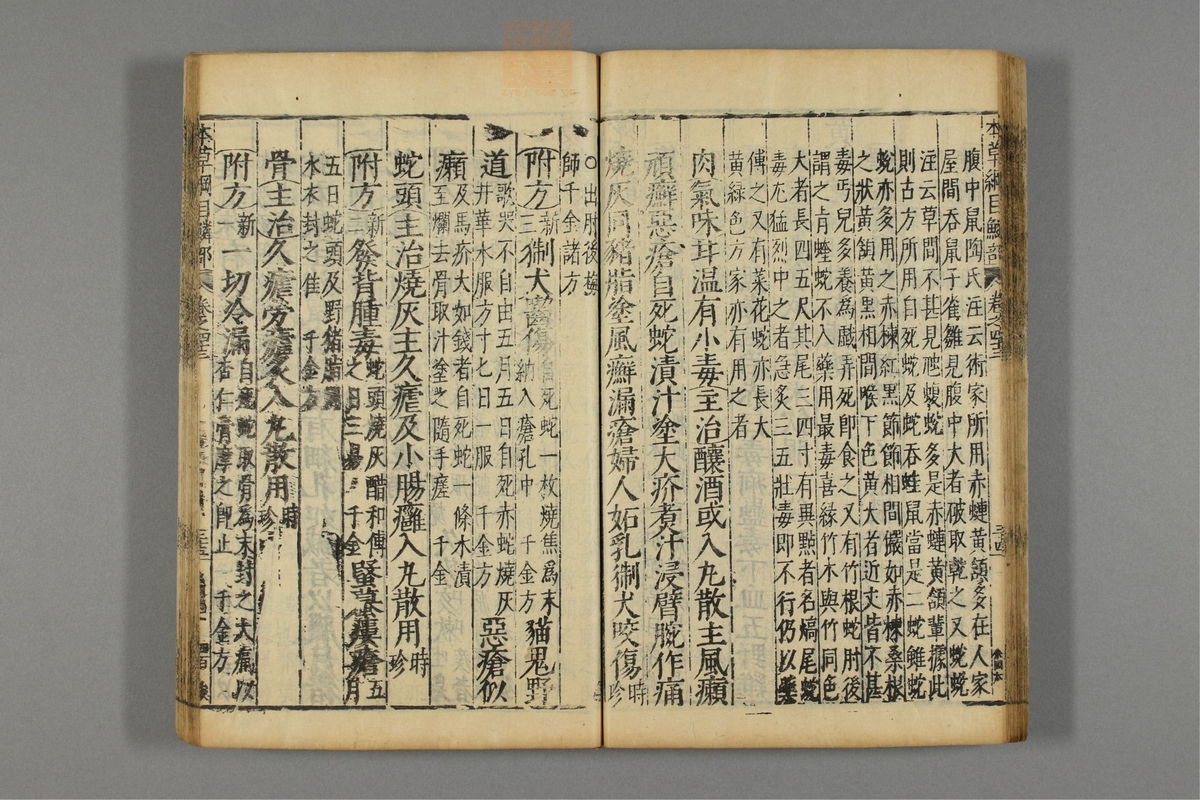 本草綱目鱗部 卷之四十三
腹中鼠陶氏注云術家所用赤蝀黄頷多在人家
屋間吞鼠子雀雛見腹中大者破取乾之又蛻蛻
注云草間不甚見虺蝮蛇多是赤蝀黄頷輩據此
則古方所用自死蛇及蛇吞蛙鼠當是二蛇雖蛇
蛻亦多用之赤楝紅黑節節相間儼如赤楝桑根
之狀黄頷黄黑相間喉下色黄大者近丈皆不甚
毒丐兒多養為戲弄死即食之又有竹根蛇肘後
謂之青蝰蛇不入藥用最毒喜緣竹木與竹同色
大者長四五尺其尾三四寸有異㸃者名熇尾蛇
毒尤猛烈中之者急灸三五壯毒即不行仍以藥
傅之又有菜花蛇亦長大
黄緑色方家亦有用之者
肉氣味甘温有小毒主治釀酒或入丸散主風癩
頑癬惡瘡自死蛇漬汁塗大疥煮汁浸臂腕作痛
燒灰同豬脂塗風癬漏瘡婦人妬乳猘犬咬傷時珍
○出肘後梅
師千金諸方
附方新三猘犬齧傷自死蛇一枚燒焦為末納入瘡孔中 千金方猫鬼野
道歌哭不自由五月五日自死赤蛇燒灰井華水服方寸七日一服 千金方惡瘡似
癩及馬疥大如錢者自死蛇一條水漬至爛去骨取汁塗之隨手瘥 千金
蛇頭主治燒灰主久瘧及小腸癰入丸散用時珍
附方新二發背腫毒蛇頭燒灰醋和傅之日三易 千金蝦蟇瘻瘡五月
五日蛇頭及野豬脂
水衣封之佳 千金方
骨主治久瘧勞瘧炙入丸散用時珍
附方新一一切冷漏自死蛇取骨為末封之大痛以杏仁膏摩之即止 千金方
本草綱目鱗部 卷之四十三